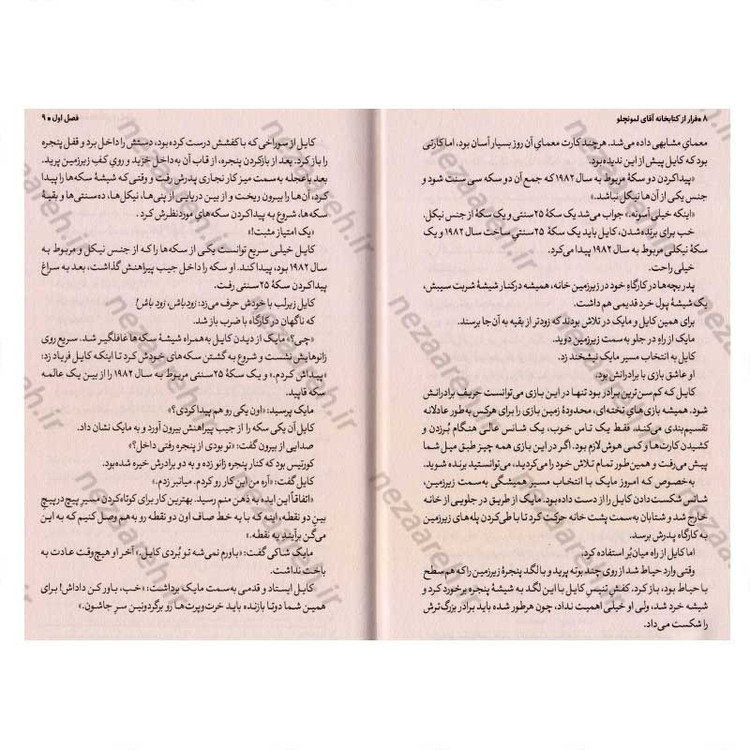 ۸ ● فرار از کتابخانه آقای لمونچلو
معمای مشابهی داده می‌شد. هرچند کارت معمای آن روز بسیار آسان بود، اما کارتی
بود که کایل پیش از این ندیده بود.
«پیداکردن دو سکهٔ مربوط به سال ۱۹۸۲ که جمع آن دو سکه سی سنت شود و
جنس یکی از آن‌ها نیکل نباشد.»
«اینکه خیلی آسونه.» جواب می‌شد یک سکهٔ ۲۵سنتی و یک سکهٔ از جنس نیکل.
خب برای برنده‌شدن، کایل باید یک سکهٔ ۲۵سنتیِ ساخت سال ۱۹۸۲ و یک
سکهٔ نیکلی مربوط به سال ۱۹۸۲ پیدا می‌کرد.
خیلی راحت.
پدر بچه‌ها در کارگاهِ خود در زیرزمین خانه، همیشه درکنار شیشهٔ شربت سیبش،
یک شیشهٔ پول خرد قدیمی هم داشت.
برای همین کایل و مایک در تلاش بودند که زودتر از بقیه به آن‌جا برسند.
مایک از راهِ در جلو به‌سمت زیرزمین دوید.
کایل به انتخاب مسیر مایک نیشخند زد.
او عاشق بازی با برادرانش بود.
کایل که کم‌سن‌ترین برادر بود تنها در این بازی می‌توانست حریف برادرانش
شود. همیشه بازی‌های تخته‌ای، محدودهٔ زمین بازی را برای هرکس به‌طور عادلانه
تقسیم‌بندی می‌کند، فقط یک تاس خوب، یک شانس عالی هنگام بُرزدن و
کشیدن کارت‌ها و کمی هوش لازم بود. اگر در این بازی همه چیز طبق میل شما
پیش می‌رفت و همین‌طور تمام تلاش خود را می‌کردید، می‌توانستید برنده شوید.
به‌خصوص که امروز مایک با انتخاب مسیر همیشگی به‌سمت زیرزمین،
شانس شکست دادن کایل را از دست داده بود. مایک از طریق در جلویی از خانه
خارج شد و شتابان به‌سمت پشت خانه حرکت کرد تا با طی‌کردن پله‌های زیرزمین
به کارگاه پدرش برسد.
اما کایل از راه میان‌بُر استفاده کرد.
وقتی وارد حیاط شد از روی چند بوته پرید و با لگد پنجرهٔ زیرزمین را که هم‌سطح
با حیاط بود، باز کرد. کفش تنیس کایل با این لگد به شیشهٔ پنجره برخورد کرد و
شیشه خرد شد، ولی او خیلی اهمیت نداد، چون هرطور شده باید برادر بزرگ‌ترش
را شکست می‌داد.
فصل اول ● ۹
کایل از سوراخی که با کفشش درست کرده بود، دستش را داخل برد و قفل پنجره
را باز کرد. بعد از بازکردن پنجره، از قاب آن به‌داخل خزید و روی کف زیرزمین پرید.
بعد باعجله به‌سمت میز کار نجاری پدرش رفت و وقتی که شیشهٔ سکه‌ها را پیدا
کرد، آن‌ها را بیرون ریخت و از بین دریایی از پنی‌ها، نیکل‌ها، ده‌سنتی‌ها و بقیهٔ
سکه‌ها، شروع به پیداکردن سکه‌های موردنظرش کرد.
«یک امتیاز مثبت!»
کایل خیلی سریع توانست یکی از سکه‌ها را که از جنس نیکل و مربوط به
سال ۱۹۸۲ بود، پیدا کند. او سکه را داخل جیب پیراهنش گذاشت، بعد به سراغ
پیداکردن سکهٔ ۲۵سنتی رفت.
کایل زیرلب با خودش حرف می‌زد: زودباش، زود باش!
که ناگهان در کارگاه با ضرب باز شد.
«چی؟» مایک از دیدن کایل به‌همراه شیشهٔ سکه‌ها غافلگیر شد. سریع روی
زانوهایش نشست و شروع به گشتن سکه‌های خودش کرد تا اینکه کایل فریاد زد:
«پیداش کردم.» و یک سکهٔ ۲۵سنتی مربوط به سال ۱۹۸۲ را از بین یک عالمه
سکه قاپید.
مایک پرسید: «اون یکی رو هم پیدا کردی؟»
کایل آن یکی سکه را از جیب پیراهنش بیرون آورد و به مایک نشان داد.
صدایی از بیرون گفت: «تو بودی از پنجره رفتی داخل؟»
کورتیس بود که کنار پنجره زانو زده و به دو برادرش خیره شده‌بود.
کایل گفت: «آره من این کار رو کردم. میانبر زدم.»
«اتفاقاً این ایده به ذهن منم رسید. بهترین کار برای کوتاه‌کردن مسیرِ پیچ‌درپیچِ
بین دو نقطه، اینه که با یه خط صاف اون دو نقطه رو به‌هم وصل کنیم که به این
می‌گن برآیند یه نقطه.»
مایک شاکی گفت: «باورم نمی‌شه تو بُردی کایل.» آخر او هیچ‌وقت عادت به
باخت نداشت.
کایل ایستاد و قدمی به‌سمت مایک برداشت: «خب، باور کن داداش! برای
همین شما دوتا بازنده باید خرت‌وپرت‌ها رو برگردونین سرِ جاشون.»
nezaareh.ir